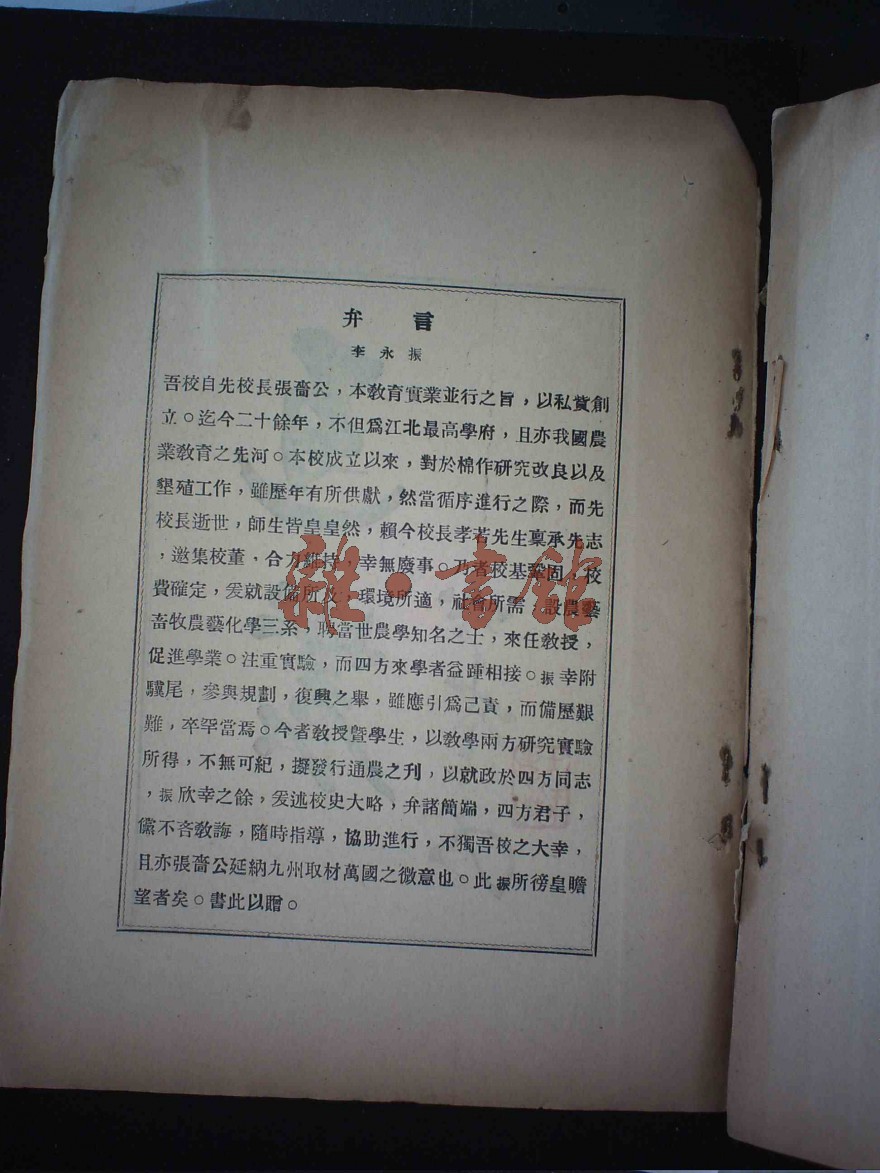 弁言
李永振
吾校自先校長張嗇公，本教育實業並行之旨，以私貲創
立。迄今二十餘年，不但爲江北最高學府，且亦我國農
業教育之先河。本校成立以來，對於棉作研究改良以及
墾殖工作，雖歷年有所供獻，然當循序進行之際，而先
校長逝世，師生皆皇皇然，賴今校長孝若先生稟承先志
，邀集校董，合力維持，幸無廢事。乃者校基鞏固，校
費確定，爰就設備所及，環境所適，社會所需，設農藝
畜牧農藝化學三系，聘當世農學知名之士，來任教授，
促進學業。注重實驗，而四方來學者益踵相接。振幸附
驥尾，參與規劃，復興之舉，雖應引爲己責，而備歷艱
難，卒罕當焉。今者教授曁學生，以教學兩方研究實驗
所得，不無可紀，擬發行通農之刊，以就政於四方同志
，振欣幸之餘，爰述校史大略，弁諸簡端，四方君子，
儻不吝教誨，隨時指導，協助進行，不獨吾校之大幸，
且亦張嗇公延納九州取材萬國之微意也。此振所徬皇瞻
望者矣。書此以贈。
雜·書館